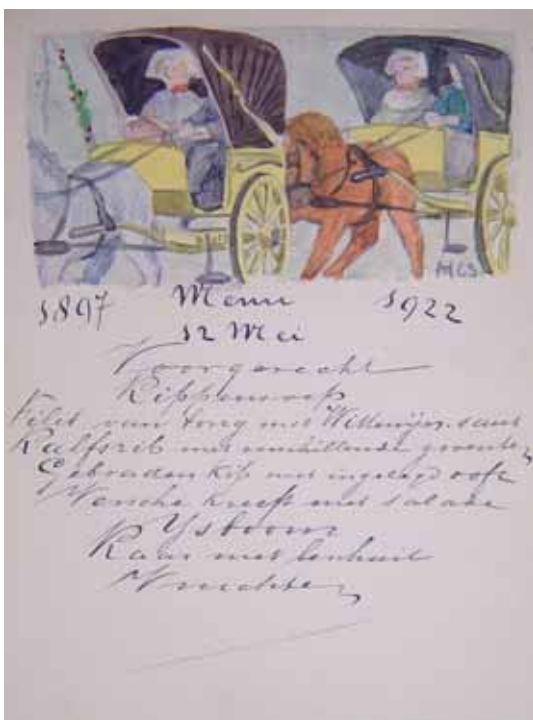 MCS
1897 Menu 1922
12 Mei
Voorgerecht
Kippensoep
Filet van tong met Wittewijn saus
Kalfsrib met verschillende groenten
Gebraden Kip met ingelegd ooft
Versche kreeft met salade
Ysboom
Kaas met
Vruchten